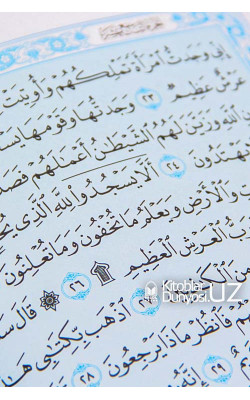 إِنِّى وَجَدتُّ ٱمْرَأَةً تَمْلِكُهُمْ وَأُوتِيَتْ
عَرْشٌ عَظِيمٌ ٢٣ وَجَدتُّهَا وَقَوْمَهَا يَسْ
ٱللَّهِ وَزَيَّنَ لَهُمُ ٱلشَّيْطَٰنُ أَعْمَٰلَهُمْ فَصَدَّ
يَهْتَدُونَ ٢٤ أَلَّا يَسْجُدُوا۟ لِلَّهِ ٱلَّذِى يُخْ
وَٱلْأَرْضِ وَيَعْلَمُ مَا تُخْفُونَ وَمَا تُعْلِنُونَ
ٱلْعَرْشِ ٱلْعَظِيمِ ۩ ٢٦ ۞ قَالَ سَ
Kitoblar
Dunyosi.UZ
ٱذْهَب بِّكِتَٰبِى هَٰ
فَٱنظُرْ مَاذَا يَرْجِعُونَ ٢٨
إِنَّهُۥ ٢٩